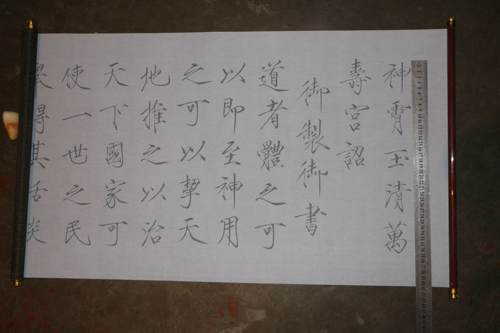 神霄玉清萬
壽宮詔
御製御書
道者體之可
以即至神用
之可以挈天
地推之以治
天下國家可
使一世之民
舉得其恬淡